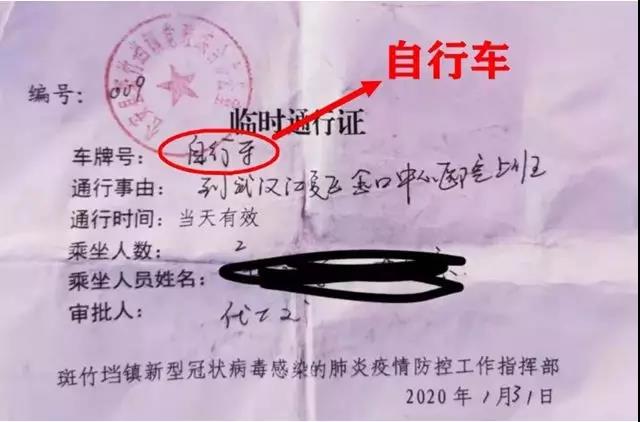 自行车
编号: 009
临时通行证
车牌号: 自行车
通行事由: 到武汉江夏区金口中心医院上班
通行时间: 当天有效
乘坐人数: 2
乘坐人员姓名:
审批人:
斑竹垱镇新型冠状病毒感染的肺炎疫情防控工作指挥部
2020 年 1月31日